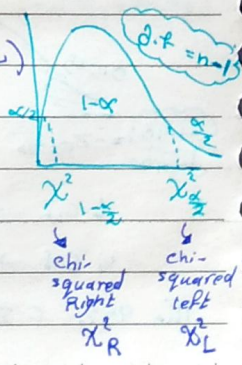 d.f = n-1
α/2
1-α
α/2
χ² 1-α/2
χ² α/2
chi-squared Right
chi-squared left
χ²R
χ²L